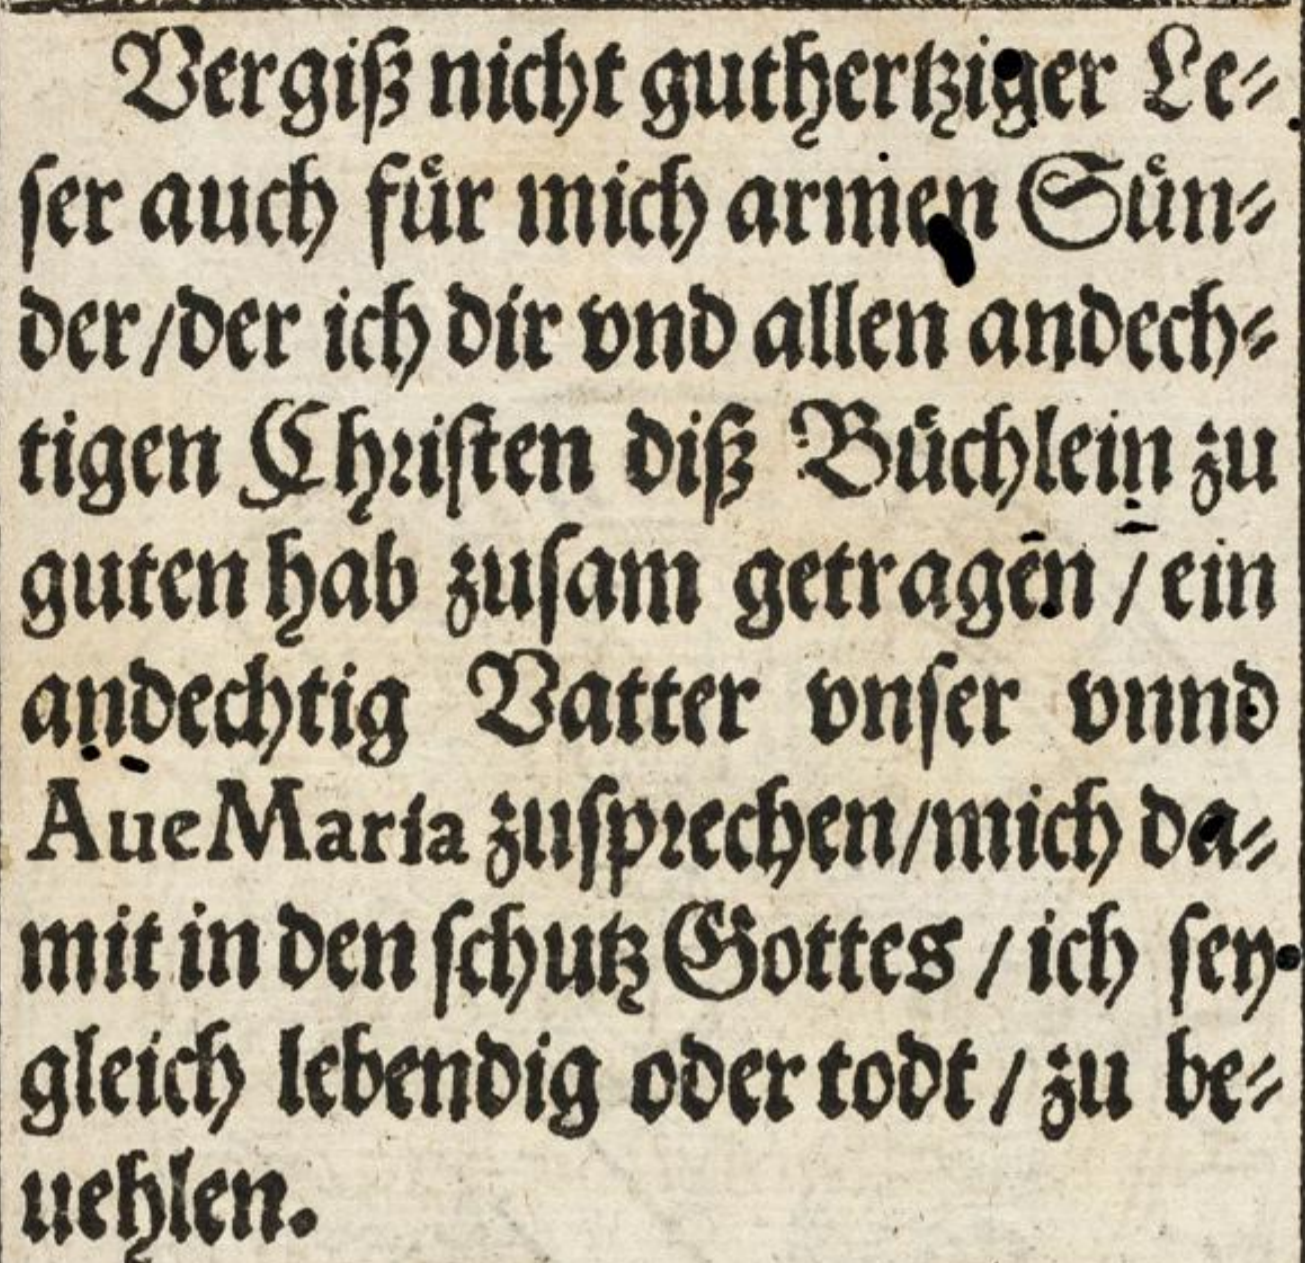 Vergiß nicht guthertziger Le⸗
ser auch fuͤr mich armen Suͤn⸗
der/der ich dir vnd allen andech⸗
tigen Christen diß Buͤchlein zu
guten hab zusam getragẽn / ein
andechtig Vatter vnser vnnd
Aue Maria zusprechen/mich da⸗
mit in den schutz Gottes / ich sey
gleich lebendig oder todt / zu be⸗
uehlen.